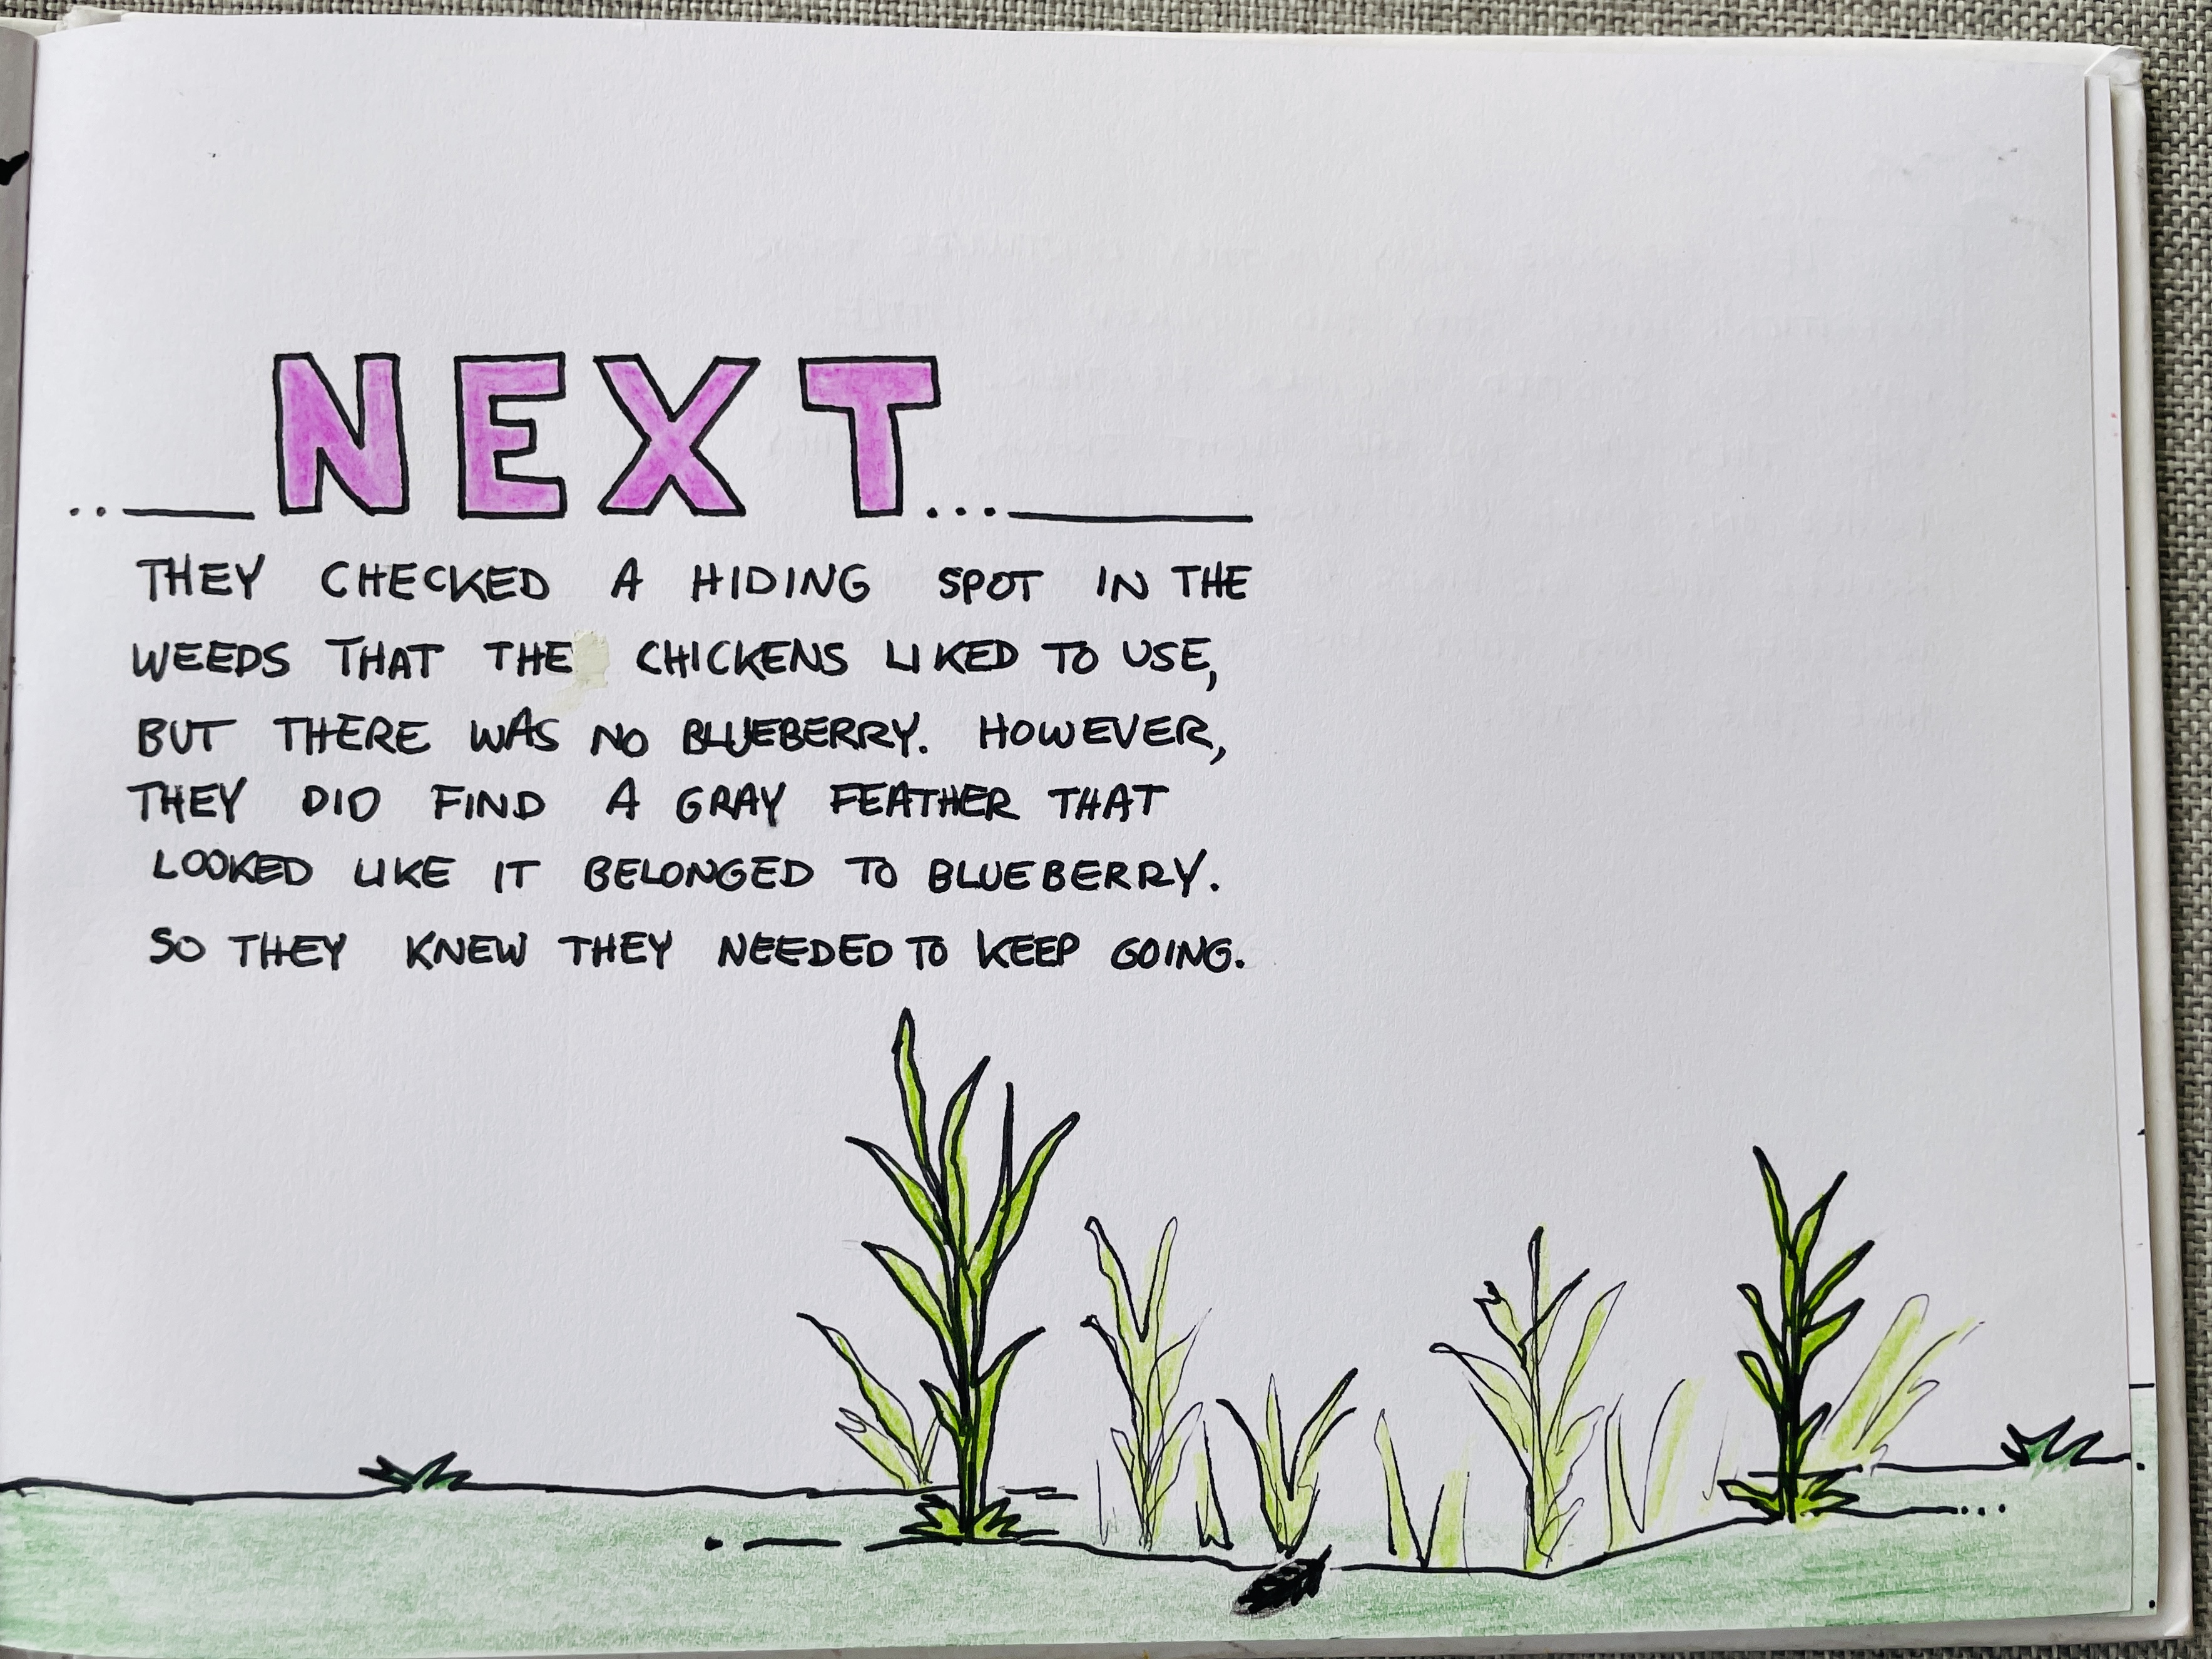 ..__NEXT...____
THEY CHECKED A HIDING SPOT IN THE
WEEDS THAT THE CHICKENS LIKED TO USE,
BUT THERE WAS NO BLUEBERRY. HOWEVER,
THEY DID FIND A GRAY FEATHER THAT
LOOKED LIKE IT BELONGED TO BLUEBERRY.
SO THEY KNEW THEY NEEDED TO KEEP GOING.